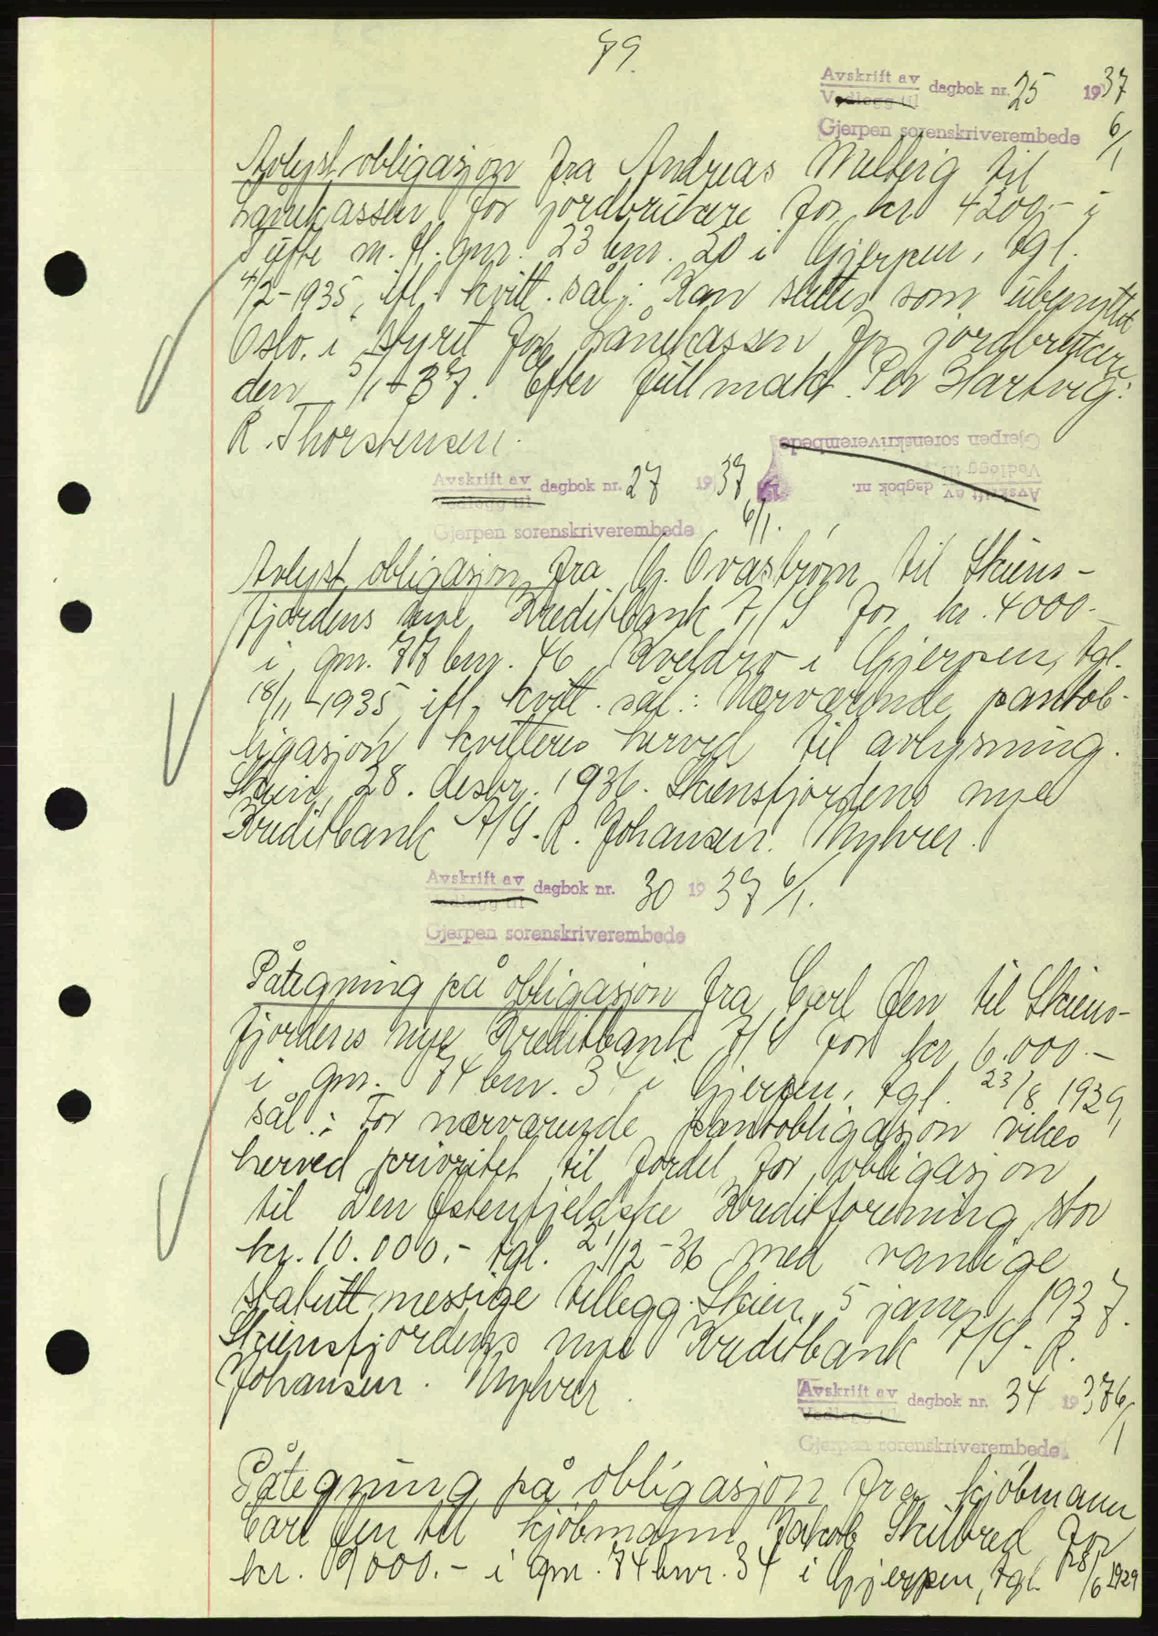 79.
Avskrift av dagbok nr. 25 1937
Vedlegg til
Gjerpen sorenskriverembede 6/1
Avlyst obligasjon fra Andreas Melberg til
Lånekassen for jordbrukere for kr 4200,- i
Tufte m. fl. gnr. 23 bnr. 20 i Gjerpen, tgl.
4/2-1935, ifl. kvitt. sål.: Kan slettes som ubenyttet
Oslo, i styret for Lånekassen for jordbrukere
den 5/1-37. Efter fullmakt. Per Hartvig:
R. Thorstensen.
Gjerpen sorenskriverembede
Vedlegg til
Avskrift av dagbok nr. 19
Avskrift av dagbok nr. 27 1937
Vedlegg til 6/1.
Gjerpen sorenskriverembede
Avlyst obligasjon fra G. til Skiens-
fjordens nye Kreditbank A/S for kr. 4000.-
i gnr. 77 bnr. 46 Kveldro i Gjerpen, tgl.
18/11-1935, ifl. kvitt. sål.: Nærværende pantob-
ligasjon kvitteres herved til avlysning.
Skien, 28. desbr. 1936. Skiensfjordens nye
Kreditbank A/S. R. Johansen. Myhrer.
Avskrift av dagbok nr. 30 1937 6/1.
Vedlegg til
Gjerpen sorenskriverembede
Påtegning på obligasjon fra Carl Øen til Skiens-
fjordens nye Kreditbank A/S for kr 6.000.-
i gnr. 74 bnr. 34 i Gjerpen, tgl. 23/8 1929,
sål.: For nærværende pantobligasjon vikes
herved prioritet til fordel for obligasjon
til Den Østenfjeldske Kreditforening, stor
kr. 10.000.- tgl. 21/12-36 med vanlige
statuttmessige tillegg. Skien, 5 janr. 1937.
Skiensfjordens nye Kreditbank A/S. R.
Johansen. Myhrer.
Avskrift av dagbok nr. 34 1937 6/1
Vedlegg til
Gjerpen sorenskriverembede
Påtegning på obligasjon fra kjøbmann
Carl Øen til kjøbmann Jakob Skilbred for
kr. 9000.- i gnr. 74 bnr. 34 i Gjerpen, tgl. 28/6 1929